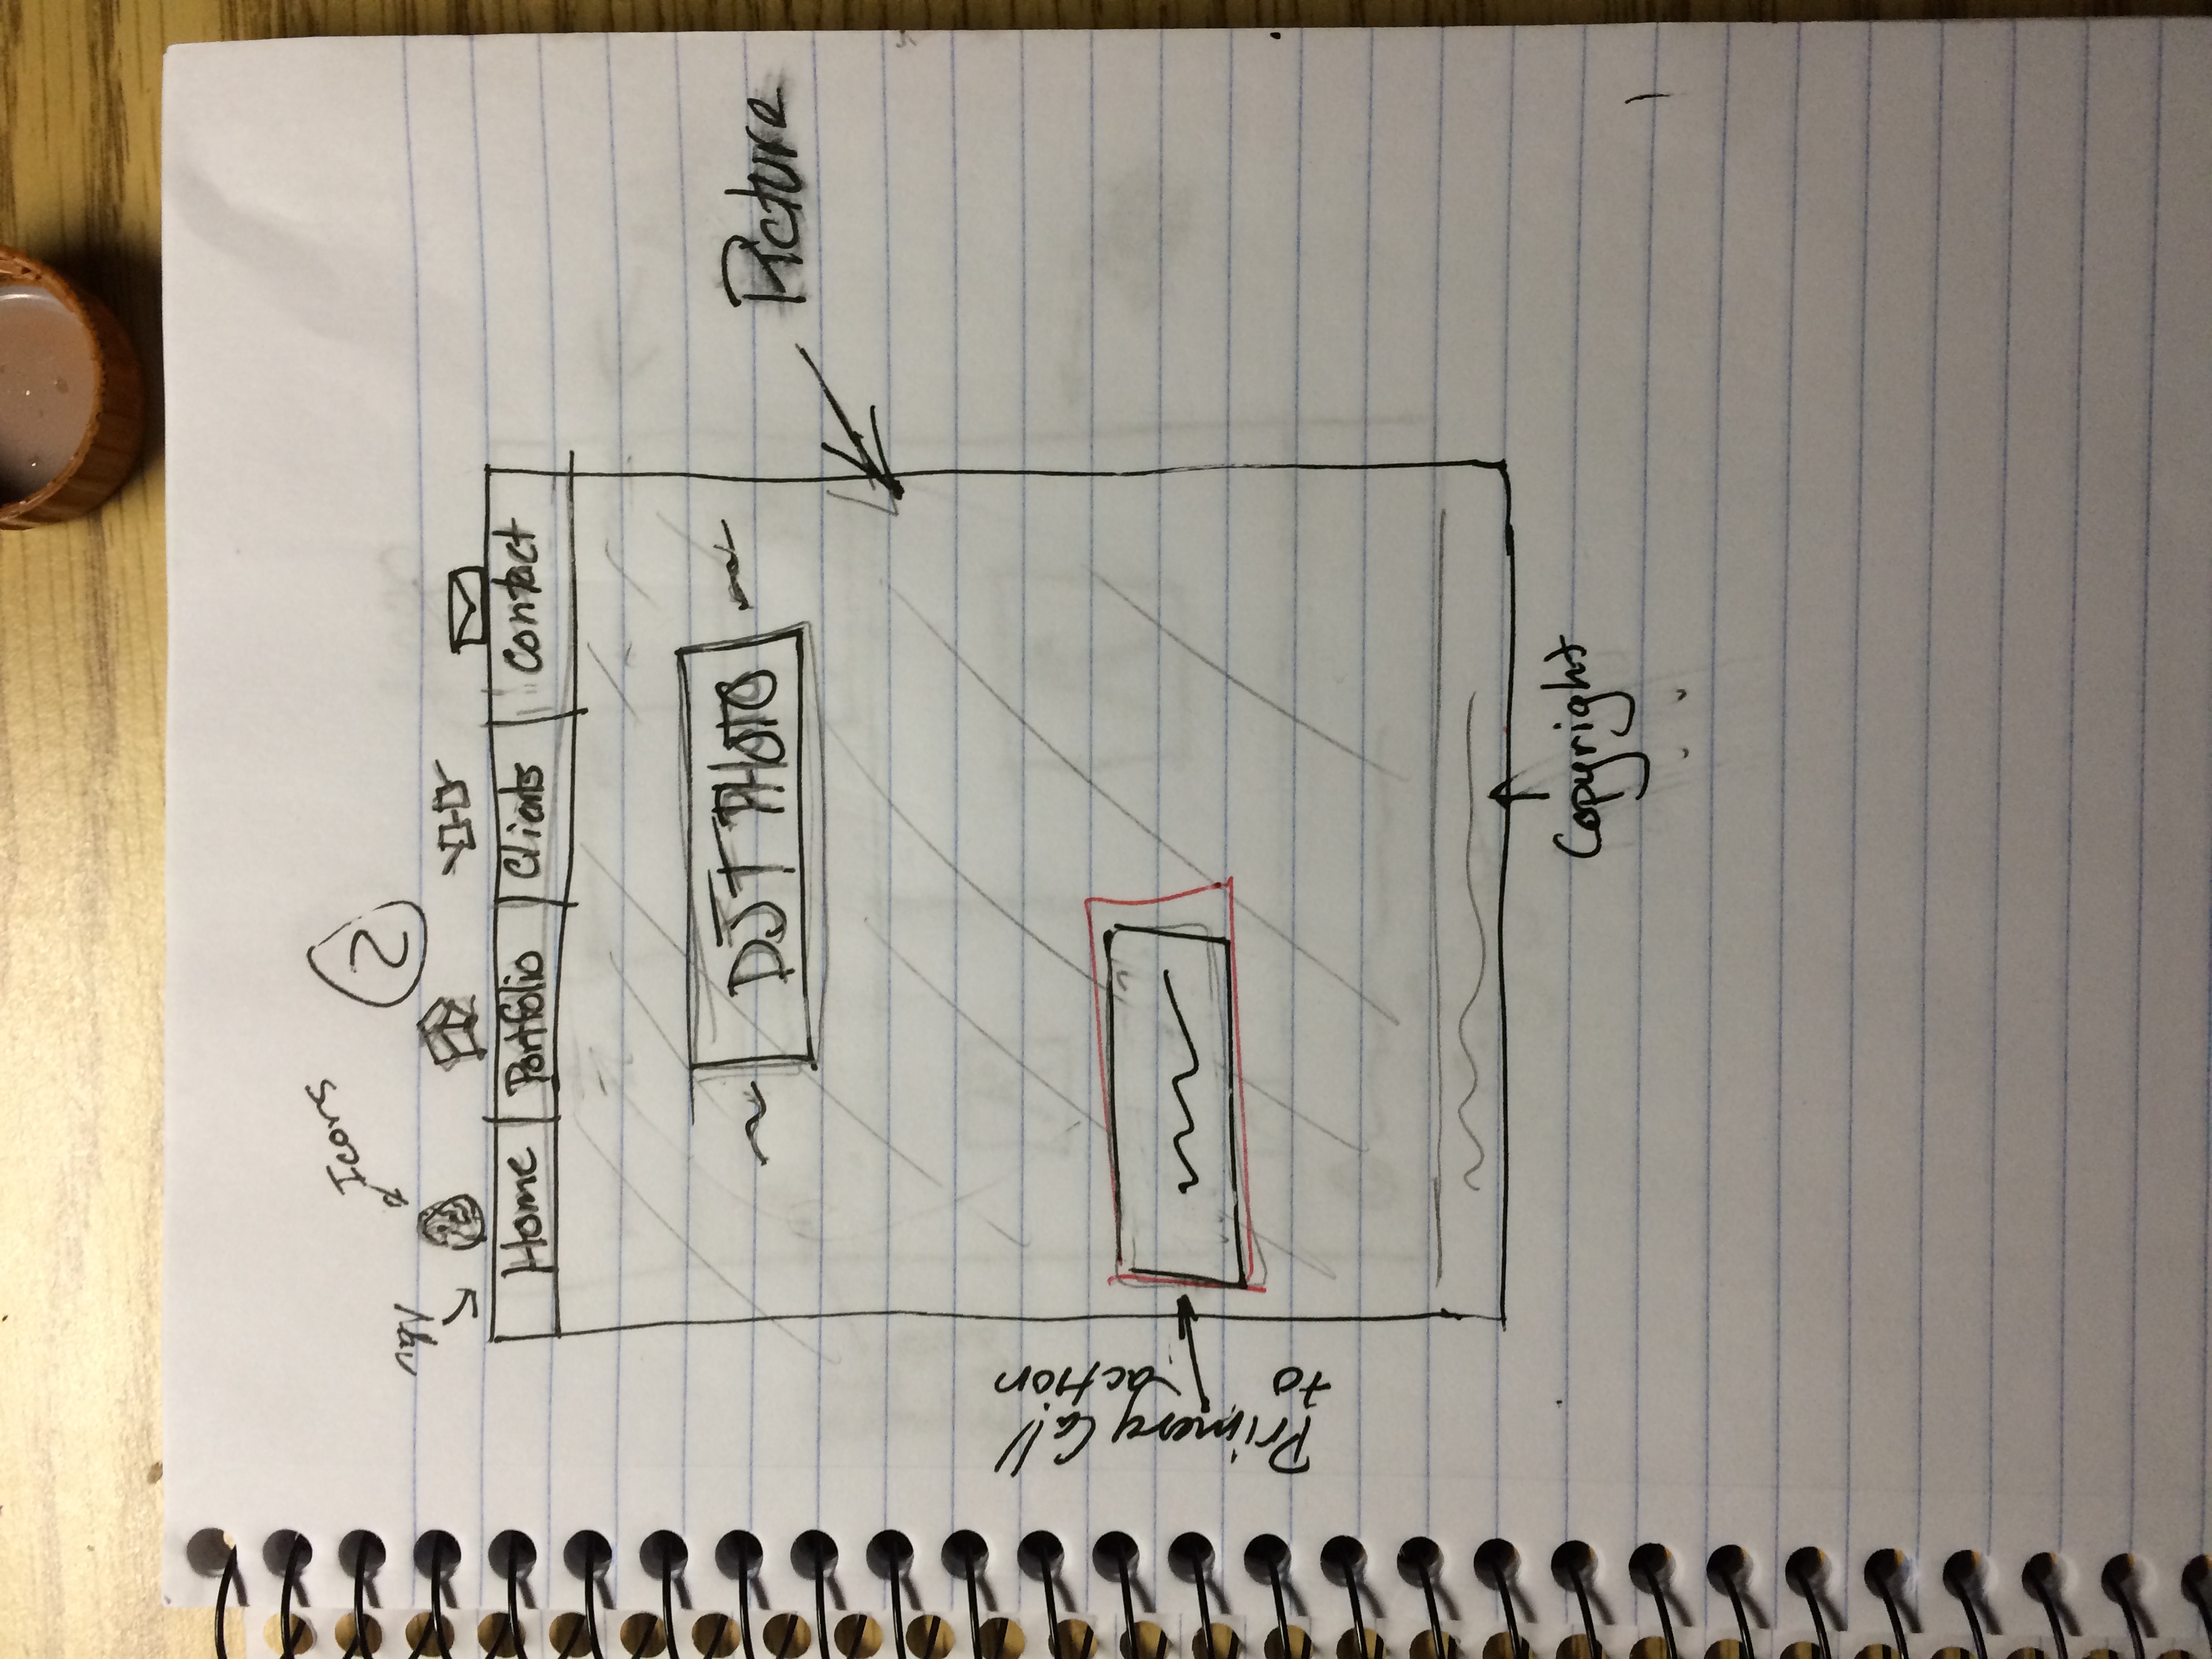 Icons
2
Nav
Home
Portfolio
Clients
Contact
DJT PHOTO
Picture
Primary Call
to action
Copyright